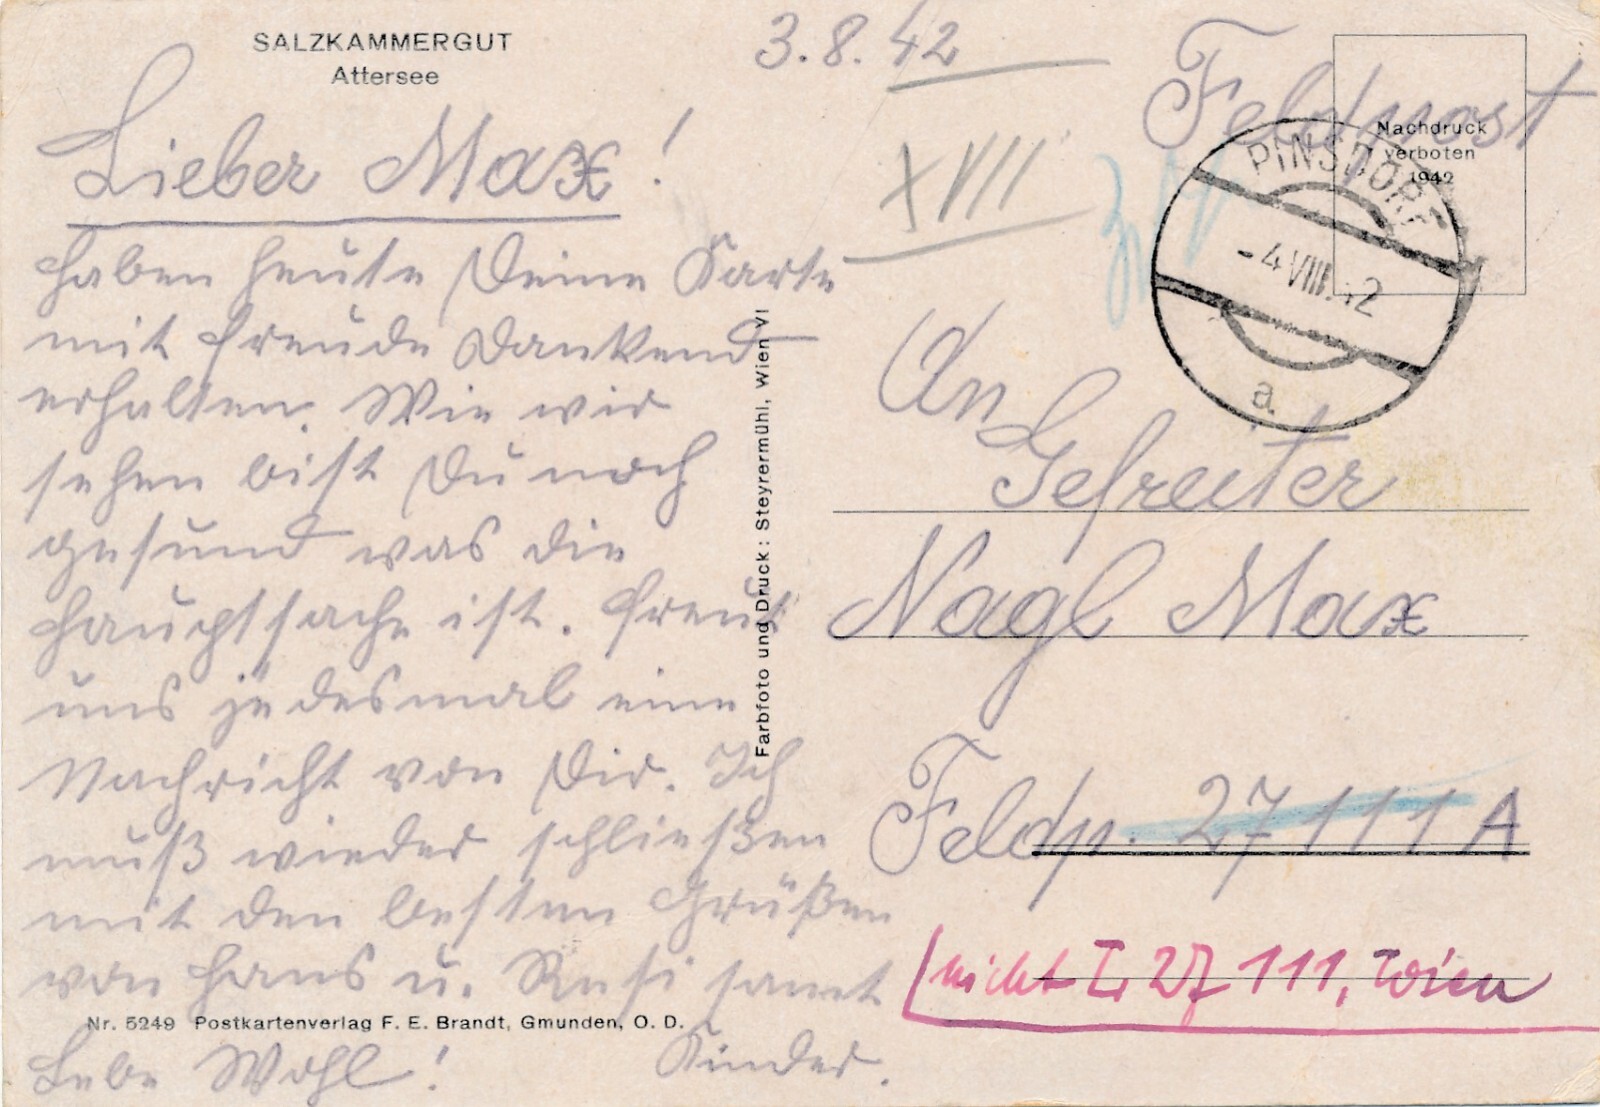 SALZKAMMERGUT
Attersee
3.8.42
Lieber Max!
haben heute Deine Karte
mit freude Dankend
erhalten. Wie wir
sehen bist Du noch
gesund was die
hauptsache ist. freut
uns jedesmal eine
Nachricht von Dir. Ich
muß wieder schließen
mit den besten Grüßen
von Hans u. Resi samt
Kinder.
Lebe Wohl!
Nr. 5249 Postkartenverlag F. E. Brandt, Gmunden, O. D.
Farbfoto und Druck: Steyrermühl, Wien VI
XVIII
Feldpost
Nachdruck
verboten
1942
PINSDORF
-4.VIII.42
a
An
Gefreiter
Nagl Max
Feldp. 27111 A
nicht L 27 111, Wien